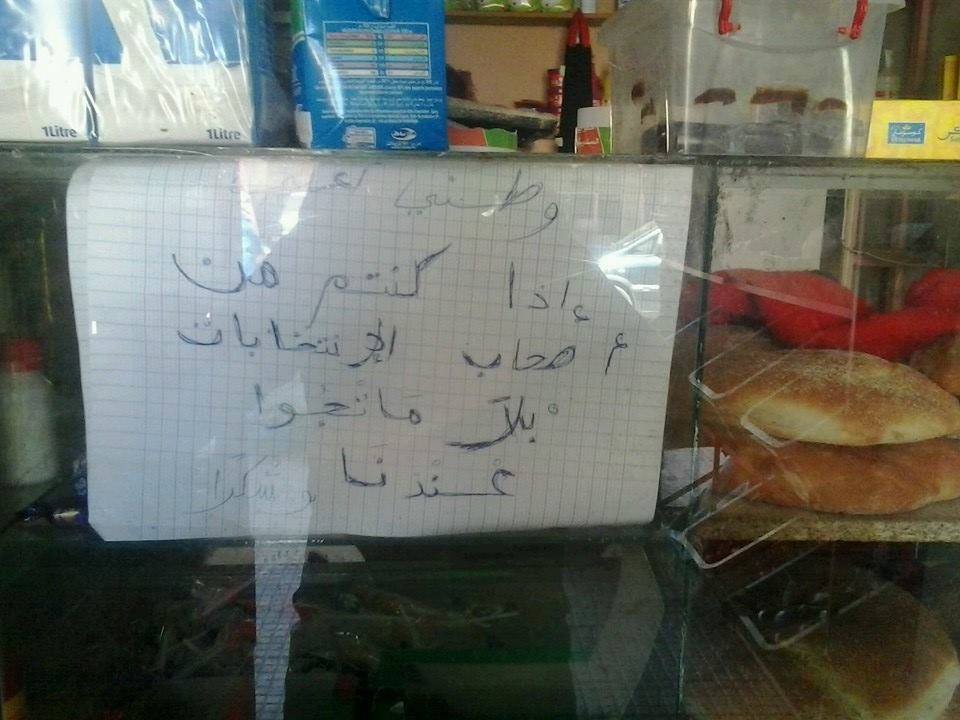 1Litre
1Litre
وطني
إذا كنتم من
أصحاب الإنتخابات
بْلاَ مَا تَجُوا
عْنْدنَا وشكرا